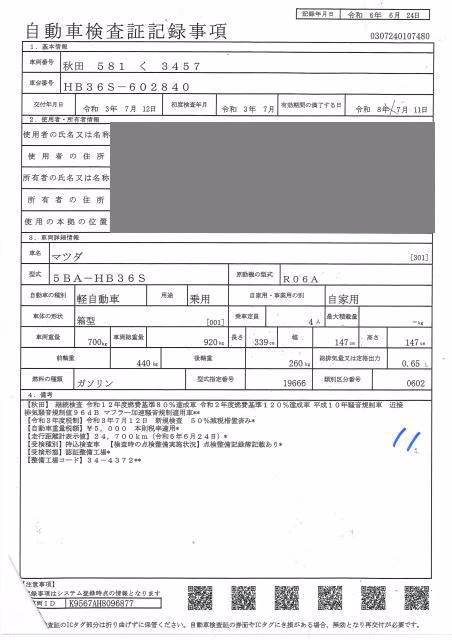 記録年月日 令和 6年 6月 24日
自動車検査証記録事項
0307240107480
1．基本情報
車両番号 秋田 581 く 3457
車台番号 HB36S－602840
交付年月日 令和 3年 7月 12日 初度検査年月 令和 3年 7月 有効期間の満了する日 令和 8年 7月 11日
2．使用者・所有者情報
使用者の氏名又は名称
使用者の住所
所有者の氏名又は名称
所有者の住所
使用の本拠の位置
3．車両詳細情報
車名 マツダ [301]
型式 5BA－HB36S 原動機の型式 R06A
自動車の種別 軽自動車 用途 乗用 自家用・事業用の別 自家用
車体の形状 箱型 [001] 乗車定員 4人 最大積載量 －kg
車両重量 700kg 車両総重量 920kg 長さ 339cm 幅 147cm 高さ 147cm
前軸重 440kg 後軸重 260kg 総排気量又は定格出力 0.65 L
燃料の種類 ガソリン 型式指定番号 19666 類別区分番号 0602
4．備考
【秋田】 継続検査 令和12年度燃費基準80％達成車 令和2年度燃費基準120％達成車 平成10年騒音規制車 近接
排気騒音規制値96dB マフラー加速騒音規制適用車**
【令和3年度税制】令和3年7月12日 新規検査 50％減税措置済み*
【自動車重量税額】￥5，000 本則税率適用*
【走行距離計表示値】24，700km（令和6年6月24日）*
【受検種別】持込検査車 【検査時の点検整備実施状況】点検整備記録簿記載あり*
【受検形態】認証整備工場*
【整備工場コード】34－4372**
11.
【注意事項】
記録事項はシステム登録時点の情報となります
車両ID K9567AH8096877
検査証のICタグ部分は折り曲げずに保管ください。自動車検査証の券面やICタグにき損がある場合、無効となり再交付が必要です。